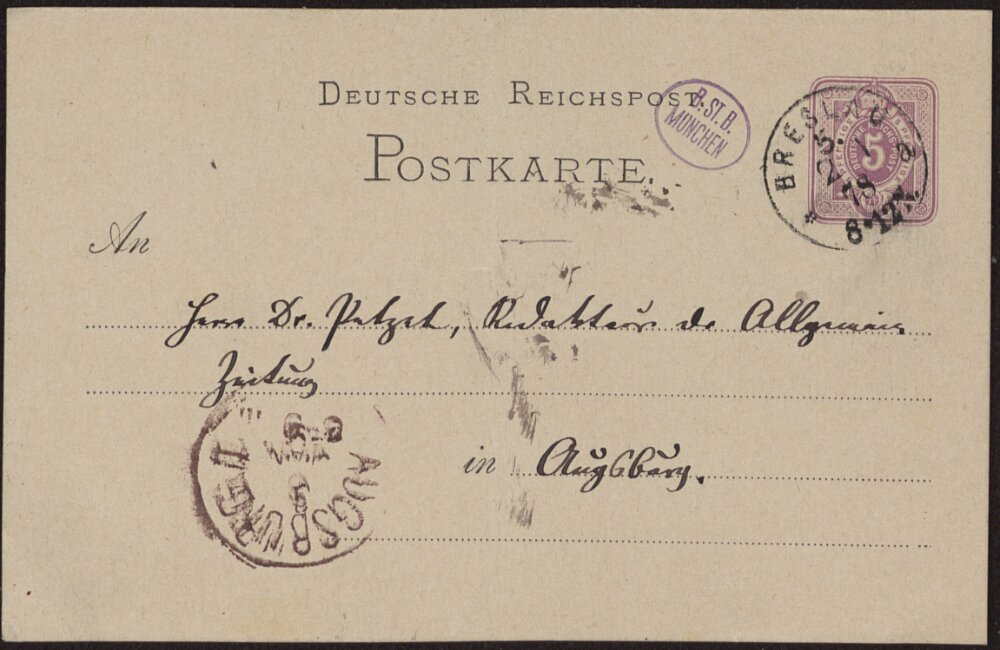 DEUTSCHE REICHSPOST.
B. ST. B.
MÜNCHEN
POSTKARTE.
BRESLAU
25. 1
78
8-12 N.
5
An
Herrn Dr. Petzet, Redakteur de Allgemein
Zeitung
in Augsburg.
AUGSBURG II